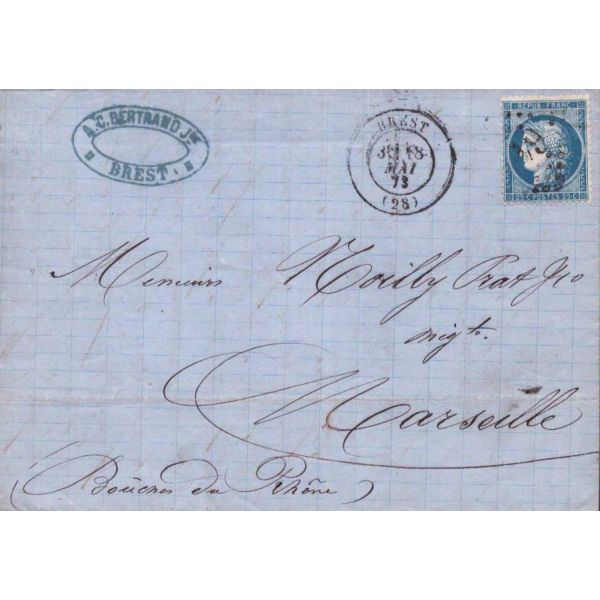 A. C. BERTRAND Jne
BREST
BREST
MAI
73
(28)
REPUB. FRANC.
25 C. POSTES 25 C.
Messieurs Noilly Prat & Co
Marseille
(Bouches du Rhône)